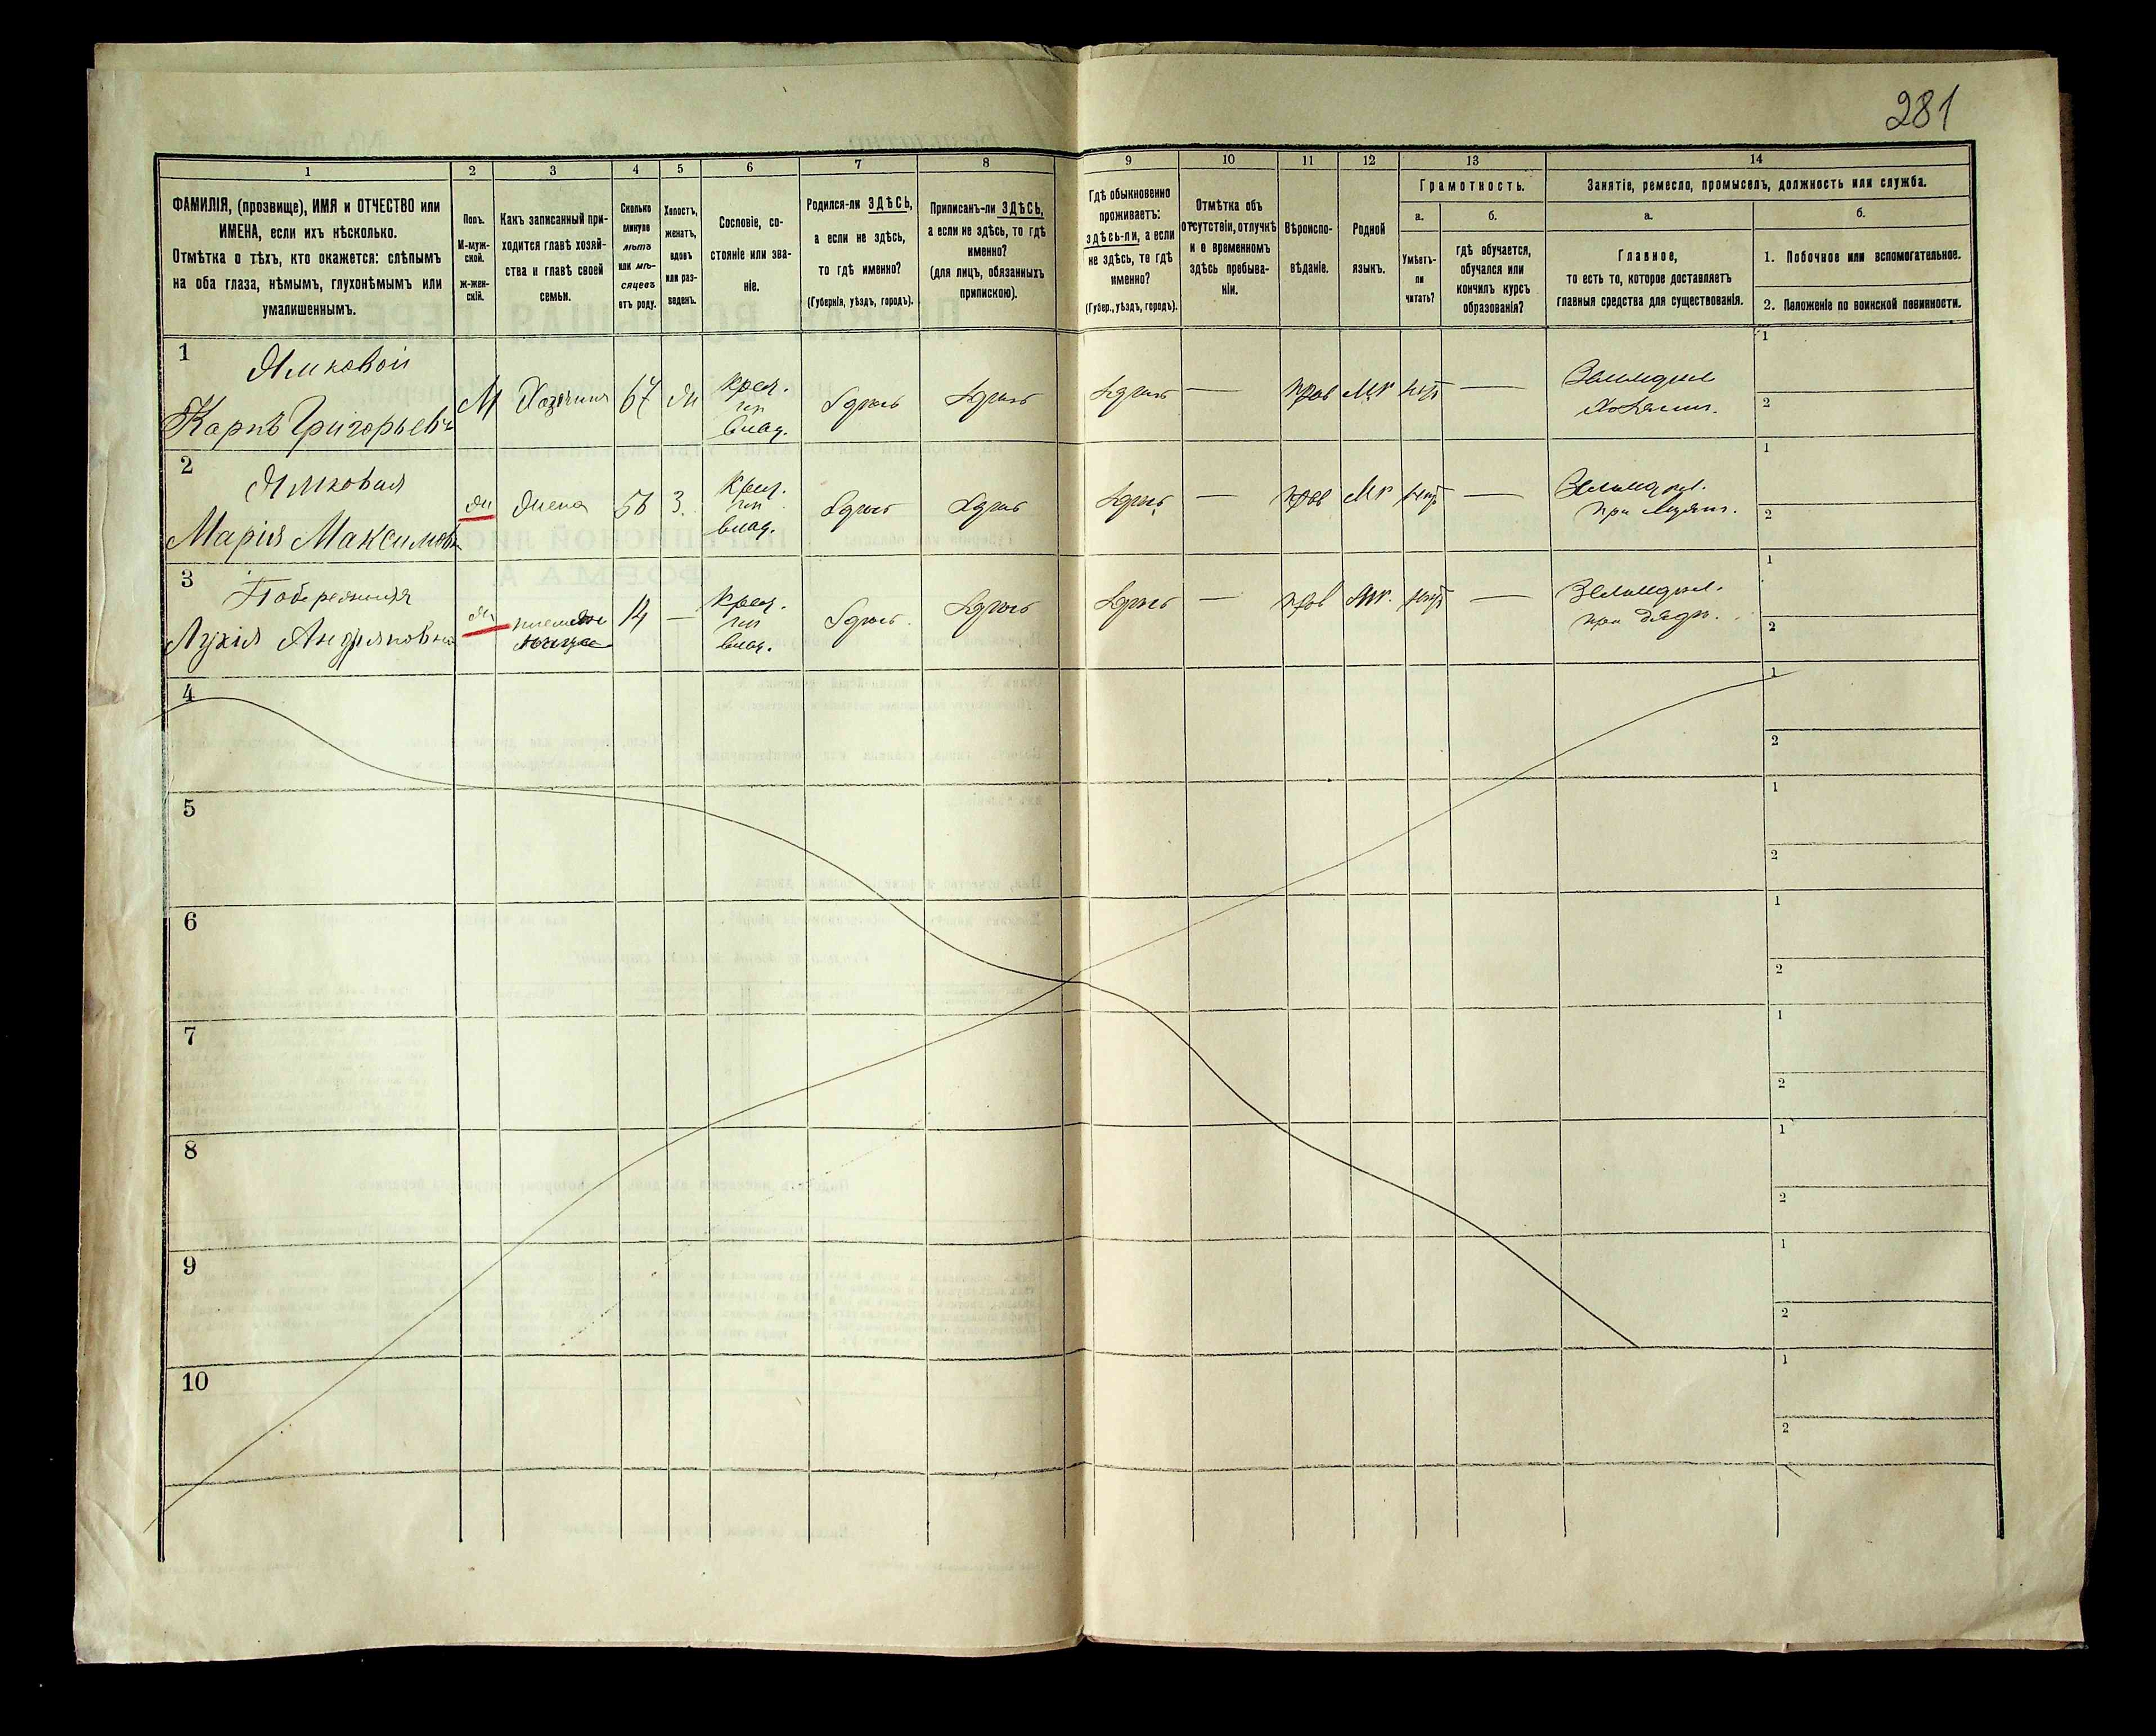 281
1
2
3
4
5
6
7
8
9
10
11
12
13
14
ФАМИЛІЯ, (прозвище), ИМЯ и ОТЧЕСТВО или
ИМЕНА, если ихъ нѣсколько.
Отмѣтка о тѣхъ, кто окажется: слѣпымъ
на оба глаза, нѣмымъ, глухонѣмымъ или
умалишеннымъ.
Полъ.
М-муж-
ской.
Ж-жен-
скій.
Какъ записанный при-
ходится главѣ хозяй-
ства и главѣ своей
семьи.
Сколько
минуло
лѣтъ
или мѣ-
сяцевъ
отъ роду.
Холостъ,
женатъ,
вдовъ
или раз-
веденъ.
Сословіе, со-
стояніе или зва-
ніе.
Родился-ли ЗДѢСЬ,
а если не здѣсь,
то гдѣ именно?
(Губернія, уѣздъ, городъ).
Приписанъ-ли ЗДѢСЬ,
а если не здѣсь, то гдѣ
именно?
(для лицъ, обязанныхъ
припискою).
Гдѣ обыкновенно
проживаетъ:
здѣсь-ли, а если
не здѣсь, то гдѣ
именно?
(Губер., уѣздъ, городъ).
Отмѣтка объ
отсутствіи, отлучкѣ
и о временномъ
здѣсь пребыва-
ніи.
Вѣроиспо-
вѣданіе.
Родной
языкъ.
Грамотность.
а.
б.
Умѣетъ-
ли
читать?
гдѣ обучается,
обучался или
кончилъ курсъ
образованія?
Занятіе, ремесло, промыселъ, должность или служба.
а.
б.
Главное,
то есть то, которое доставляетъ
главныя средства для существованія.
1. Побочное или вспомогательное.
2. Положеніе по воинской повинности.
1
Карпъ Григорьевъ
М
Хозяинъ
67
Крест.
влад.
Здѣсь
Здѣсь
Здѣсь
—
прав
Мр
нѣтъ
—
Земледѣл.
1
2
2
Марія Максимовна
ж
жена
56
З.
Крест.
влад.
Здѣсь
Здѣсь
Здѣсь
—
прав
Мр
нѣтъ
—
Земледѣл.
при мужѣ.
1
2
3
Побережная
Лукія Андріяновна
ж
14
—
Крест.
влад.
Здѣсь
Здѣсь
Здѣсь
—
прав
Мр.
нѣтъ
—
Земледѣл.
при дядѣ.
1
2
4
1
2
5
1
2
6
1
2
7
1
2
8
1
2
9
1
2
10
1
2